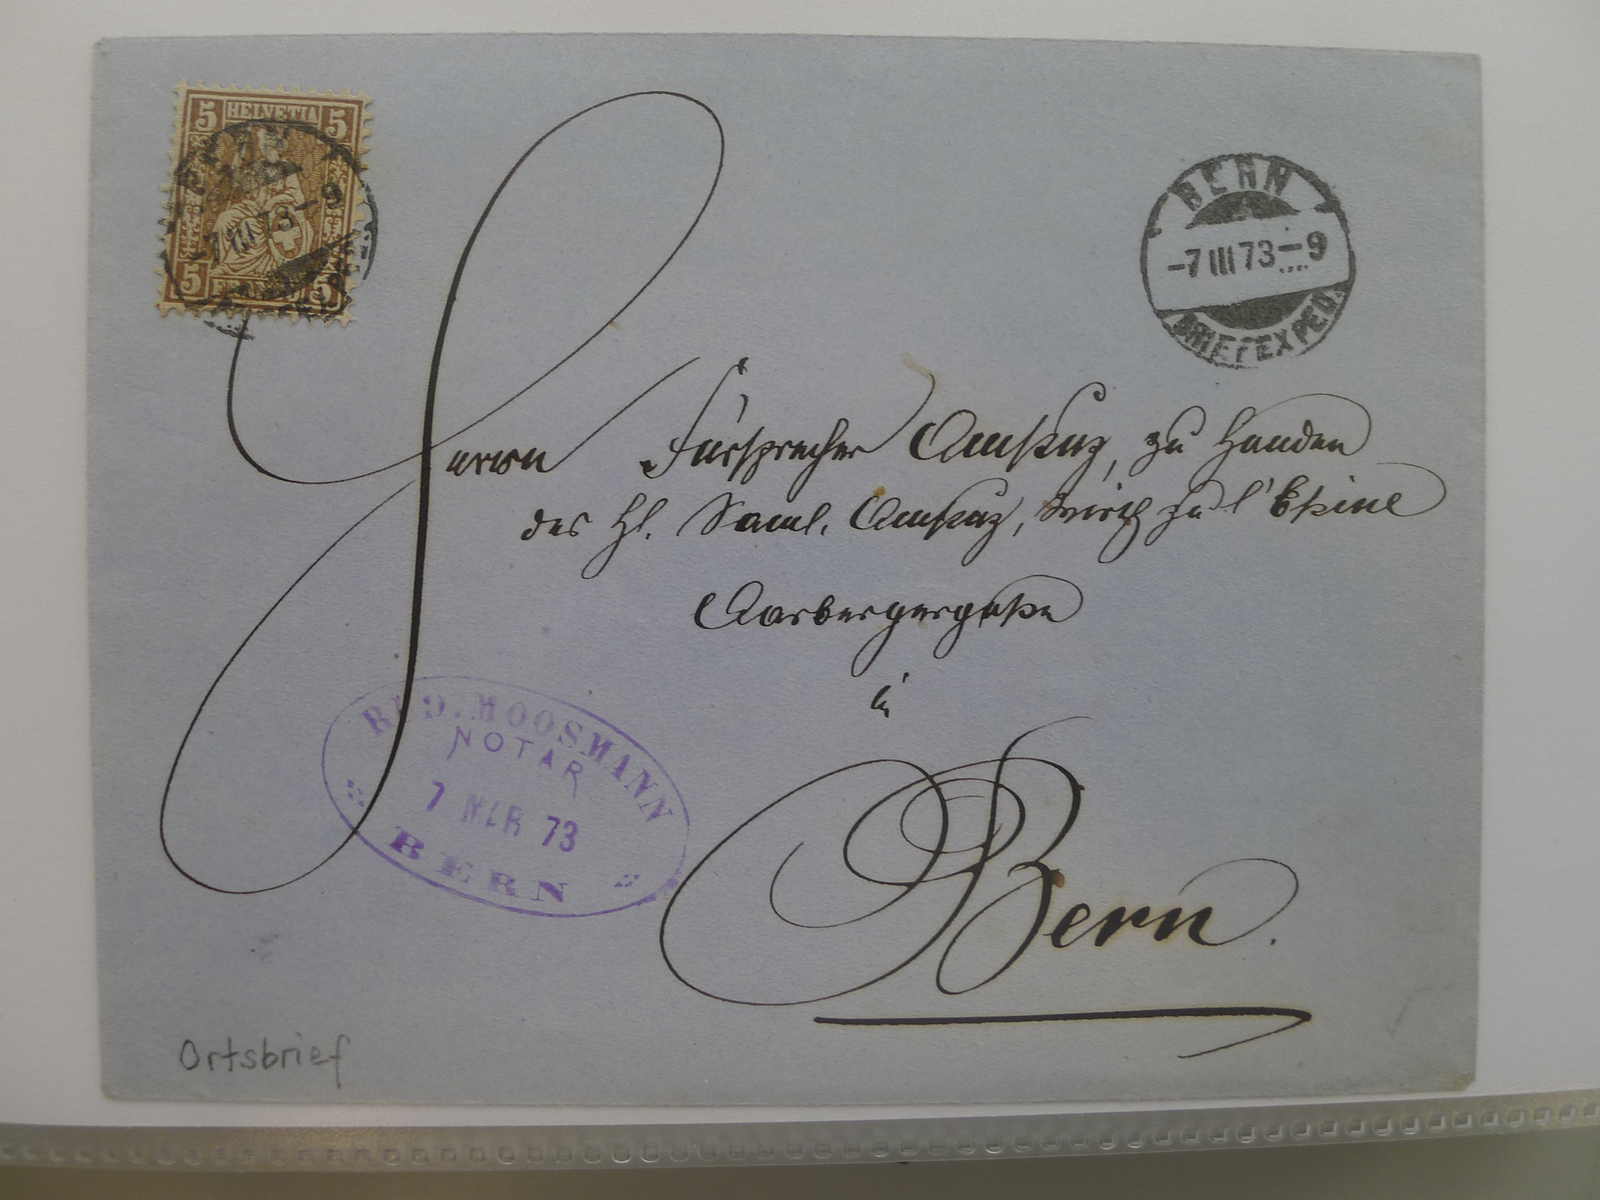 5 HELVETIA 5
5 FRANCO 5
BERN
-7 III 73 -9
BRIEFEXPED.
Herrn Fürsprecher Amstuz, zu Handen
des H. Saml. Amstuz, Wirth zu l'Epine
Aarbergergaße
in
Bern.
RUD. MOOSMANN
NOTAR
7 MÄR 73
BERN
Ortsbrief